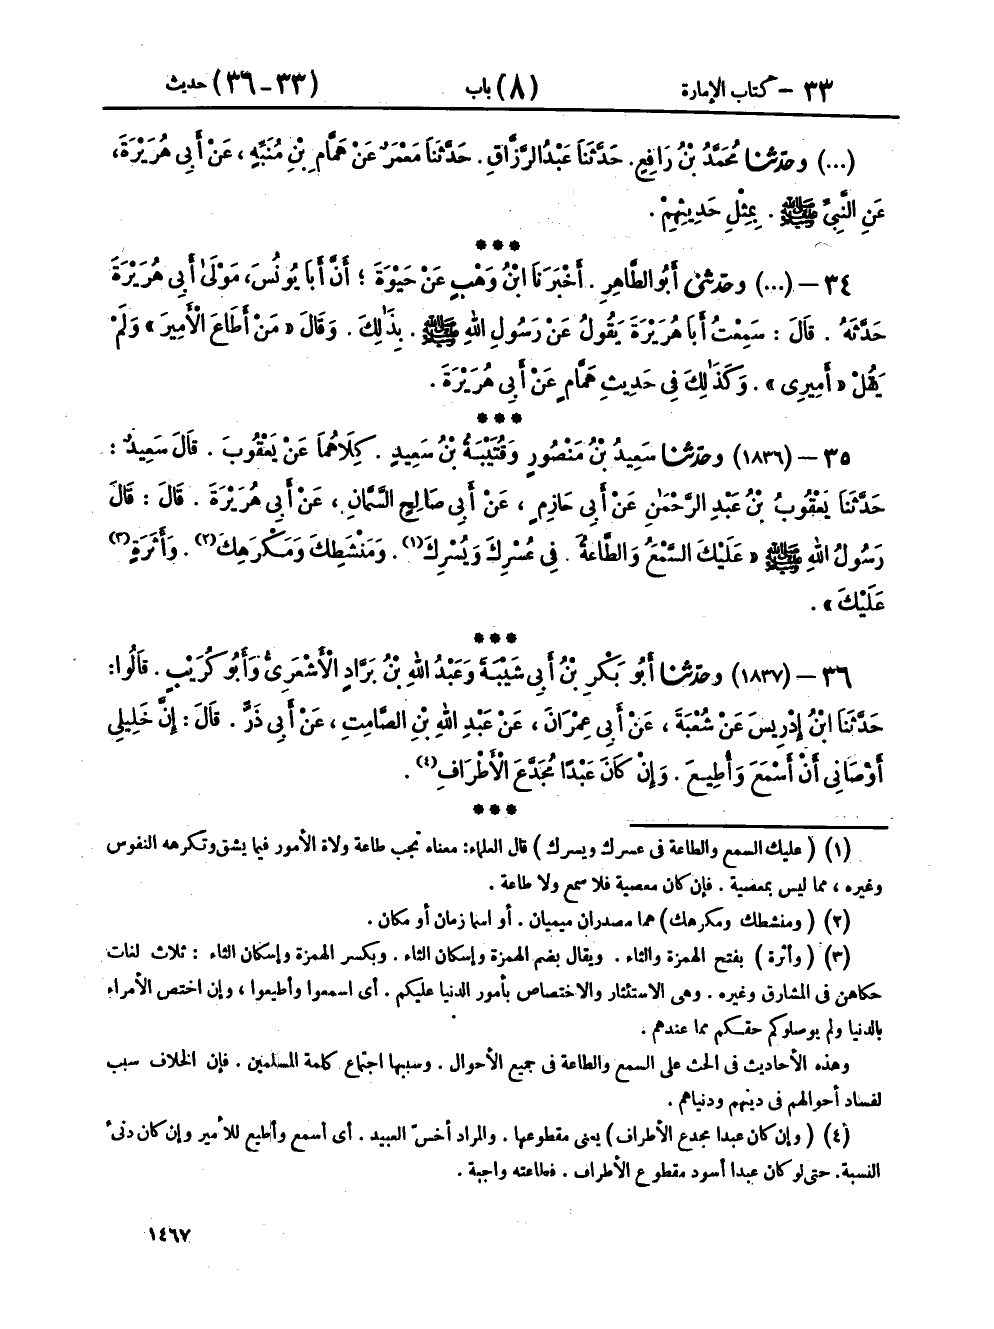 ٣٣ – كتاب الإمارة (٨) باب (٣٣-٣٦) حديث
(...) وحَدَّثَنَا مُحَمَّدُ بْنُ رَافِعٍ. حَدَّثَنَا عَبْدُ الرَّزَّاقِ. حَدَّثَنَا مَعْمَرٌ عَنْ هَمَّامِ بْنِ مُنَبِّهٍ، عَنْ أَبِي هُرَيْرَةَ،
عَنِ النَّبِيِّ ﷺ. بِمِثْلِ حَدِيثِهِمْ.
***
٣٤ – (...) وحَدَّثَنِي أَبُو الطَّاهِرِ. أَخْبَرَنَا ابْنُ وَهْبٍ عَنْ حَيْوَةَ؛ أَنَّ أَبَا يُونُسَ، مَوْلَىٰ أَبِي هُرَيْرَةَ
حَدَّثَهُ. قَالَ: سَمِعْتُ أَبَا هُرَيْرَةَ يَقُولُ عَنْ رَسُولِ اللهِ ﷺ. بِذَٰلِكَ. وَقَالَ «مَنْ أَطَاعَ الْأَمِيرَ» وَلَمْ
يَقُلْ «أَمِيرِي». وَكَذَٰلِكَ فِي حَدِيثِ هَمَّامٍ عَنْ أَبِي هُرَيْرَةَ.
***
٣٥ – (١٨٣٦) وحَدَّثَنَا سَعِيدُ بْنُ مَنْصُورٍ وَقُتَيْبَةُ بْنُ سَعِيدٍ. كِلَاهُمَا عَنْ يَعْقُوبَ. قَالَ سَعِيدٌ:
حَدَّثَنَا يَعْقُوبُ بْنُ عَبْدِ الرَّحْمَٰنِ عَنْ أَبِي حَازِمٍ، عَنْ أَبِي صَالِحٍ السَّمَّانِ، عَنْ أَبِي هُرَيْرَةَ. قَالَ: قَالَ
رَسُولُ اللهِ ﷺ «عَلَيْكَ السَّمْعُ وَالطَّاعَةُ. فِي عُسْرِكَ وَيُسْرِكَ(١). وَمَنْشَطِكَ وَمَكْرَهِكَ(٢). وَأَثَرَةٍ(٣)
عَلَيْكَ».
***
٣٦ – (١٨٣٧) وحَدَّثَنَا أَبُو بَكْرِ بْنُ أَبِي شَيْبَةَ وَعَبْدُ اللهِ بْنُ بَرَّادٍ الْأَشْعَرِيُّ وَأَبُو كُرَيْبٍ. قَالُوا:
حَدَّثَنَا ابْنُ إِدْرِيسَ عَنْ شُعْبَةَ، عَنْ أَبِي عِمْرَانَ، عَنْ عَبْدِ اللهِ بْنِ الصَّامِتِ، عَنْ أَبِي ذَرٍّ. قَالَ: إِنَّ خَلِيلِي
أَوْصَانِي أَنْ أَسْمَعَ وَأُطِيعَ. وَإِنْ كَانَ عَبْدًا مُجَدَّعَ الْأَطْرَافِ(٤).
***
(١) (عليك السمع والطاعة فى عسرك ويسرك) قال العلماء: معناه تجب طاعة ولاة الأمور فيما يشق وتكرهه النفوس
وغيره، مما ليس بمعصية. فإن كان معصية فلا سمع ولا طاعة.
(٢) (ومنشطك ومكرهك) هما مصدران ميميان. أو اسما زمان أو مكان.
(٣) (وأثرة) بفتح الهمزة والثاء. ويقال بضم الهمزة وإسكان الثاء. وبكسر الهمزة وإسكان الثاء: ثلاث لغات
حكاهن فى المشارق وغيره. وهى الاستئثار والاختصاص بأمور الدنيا عليكم. أى اسمعوا وأطيعوا، وإن اختص الأمراء
بالدنيا ولم يوصلوكم حقكم مما عندهم.
وهذه الأحاديث فى الحث على السمع والطاعة فى جميع الأحوال. وسببها اجتماع كلمة المسلمين. فإن الخلاف سبب
لفساد أحوالهم فى دينهم ودنياهم.
(٤) (وإن كان عبدا مجدع الأطراف) يعنى مقطوعها. والمراد أخس العبيد. أى أسمع وأطيع للأمير وإن كان دنىء
النسبة. حتى لو كان عبدا أسود مقطوع الأطراف. فطاعته واجبة.
١٤٦٧